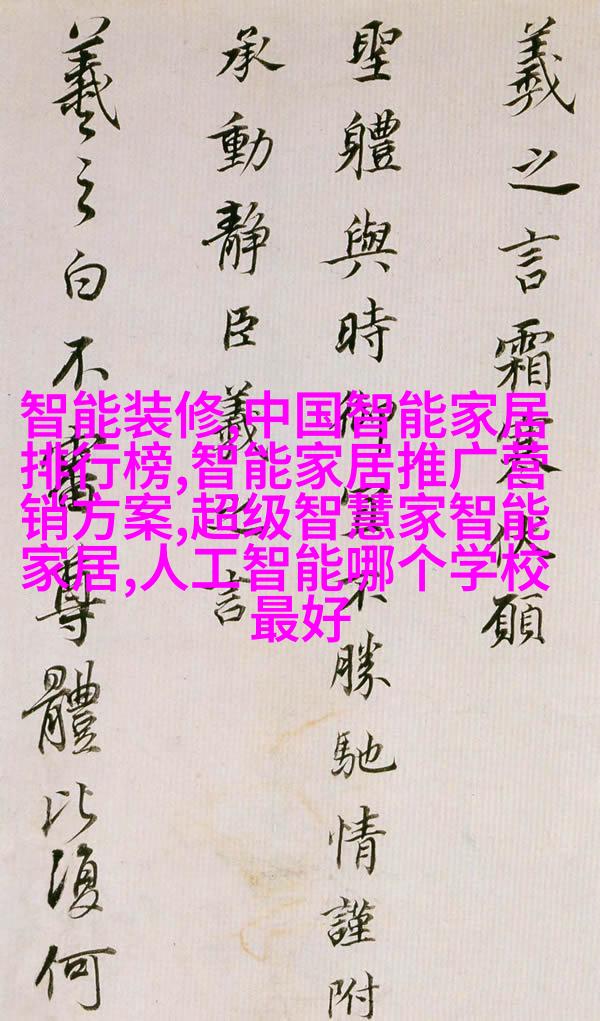 羲之言霜寒伏願
聖體與時御宜不勝馳情謹附
承動靜臣羲之言
羲之白不審尊體比復何
智能装修,中国智能家居
排行榜,智能家居推广营
销方案,超级智慧家智能
家居,人工智能哪个学校
最好